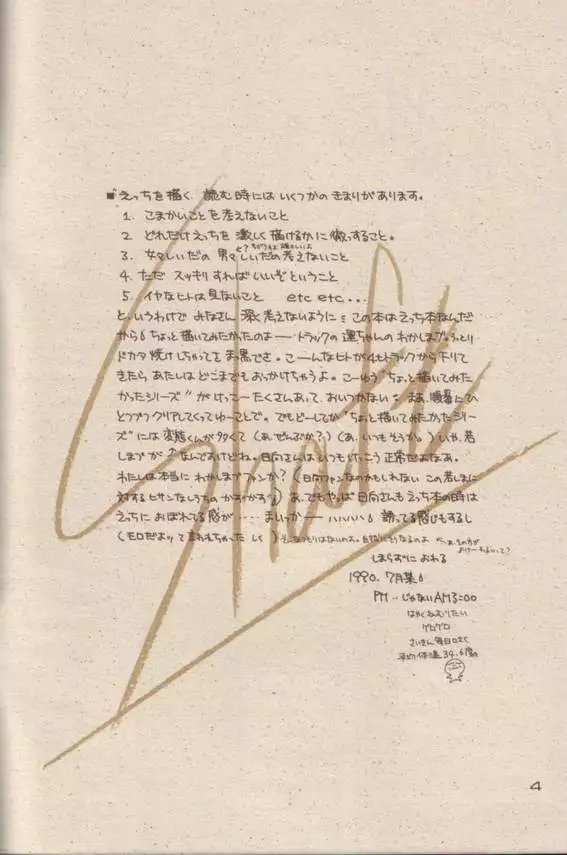 ■えっちを描く、読む時には いくつかの きまりがあります。
1. こまかいことを考えないこと
2. どれだけえっちを 激しく描けるかに徹っすること。
3. 女々しいだの 男々しいだの考えないこと
4. ただ スッキリすればいいぞということ
5. イヤなヒトは見ないこと etc etc...
と、いうわけで みなさん 深く考えないように この本はえっち本なんだ
から ちょっと描いてみたかったのよ——トラックの運ちゃんのわかしまづ
ドカタ焼けしちゃってま黒でさ。こーんなヒトが4tトラックから下りて
きたら あたしはどこまでもおっかけちゃうよ。こーゆう“ちょっと描いてみた
かったシリーズ”がけっこーたくさんあって、おいつかない まあ、暇暮にひ
とつづつクリアしてくってゆーことで。でもどーしてか“ちょっと描いてみたかったシリー
ズ”には変態くんが多くて(あ、ぜんぶか?)(あ、いつもそうか。)いや、若
しまづが なんですけどね。日向さんはいつもけっこう正常だよなあ。
わたしは本当に わかしまづファンか?(日向ファンなのかもしれない この若しまに
対するヒサンなしうちのかずかず)あ、でもやっぱ日向さんもえっち本の時は
えっちに おぼれてる感が・・・・・まいっかーハハハハ 諦ってる感じもするし
(モロだよって言われちゃった しく)そんなつもりはないのよ。自然にそうなるのよ
しまらずに おわる
1990. 7月某
PM・・じゃないAM3:00
はやくねむりたい
ゲロゲロ
さいきん毎日ロエく
平均体温34.6度
4
Shaft